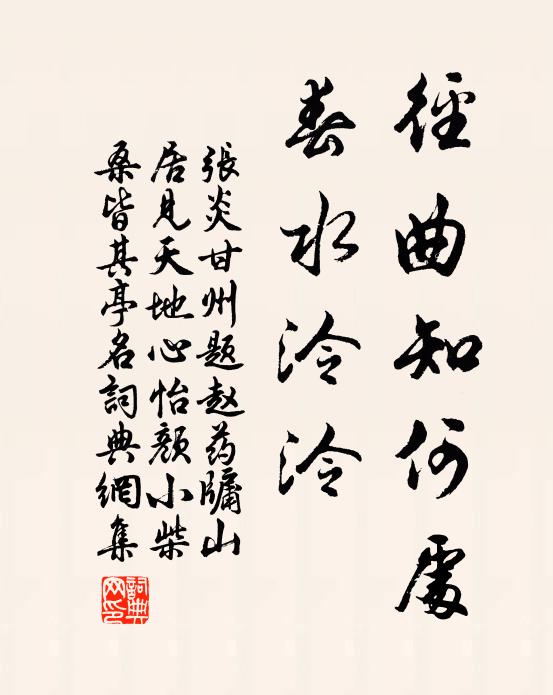 徑曲知何處
春水泠泠
張炎甘州題赵药牖山
居見天地心怡顏小柴
桑皆其亭名詞典網集
詞典网印